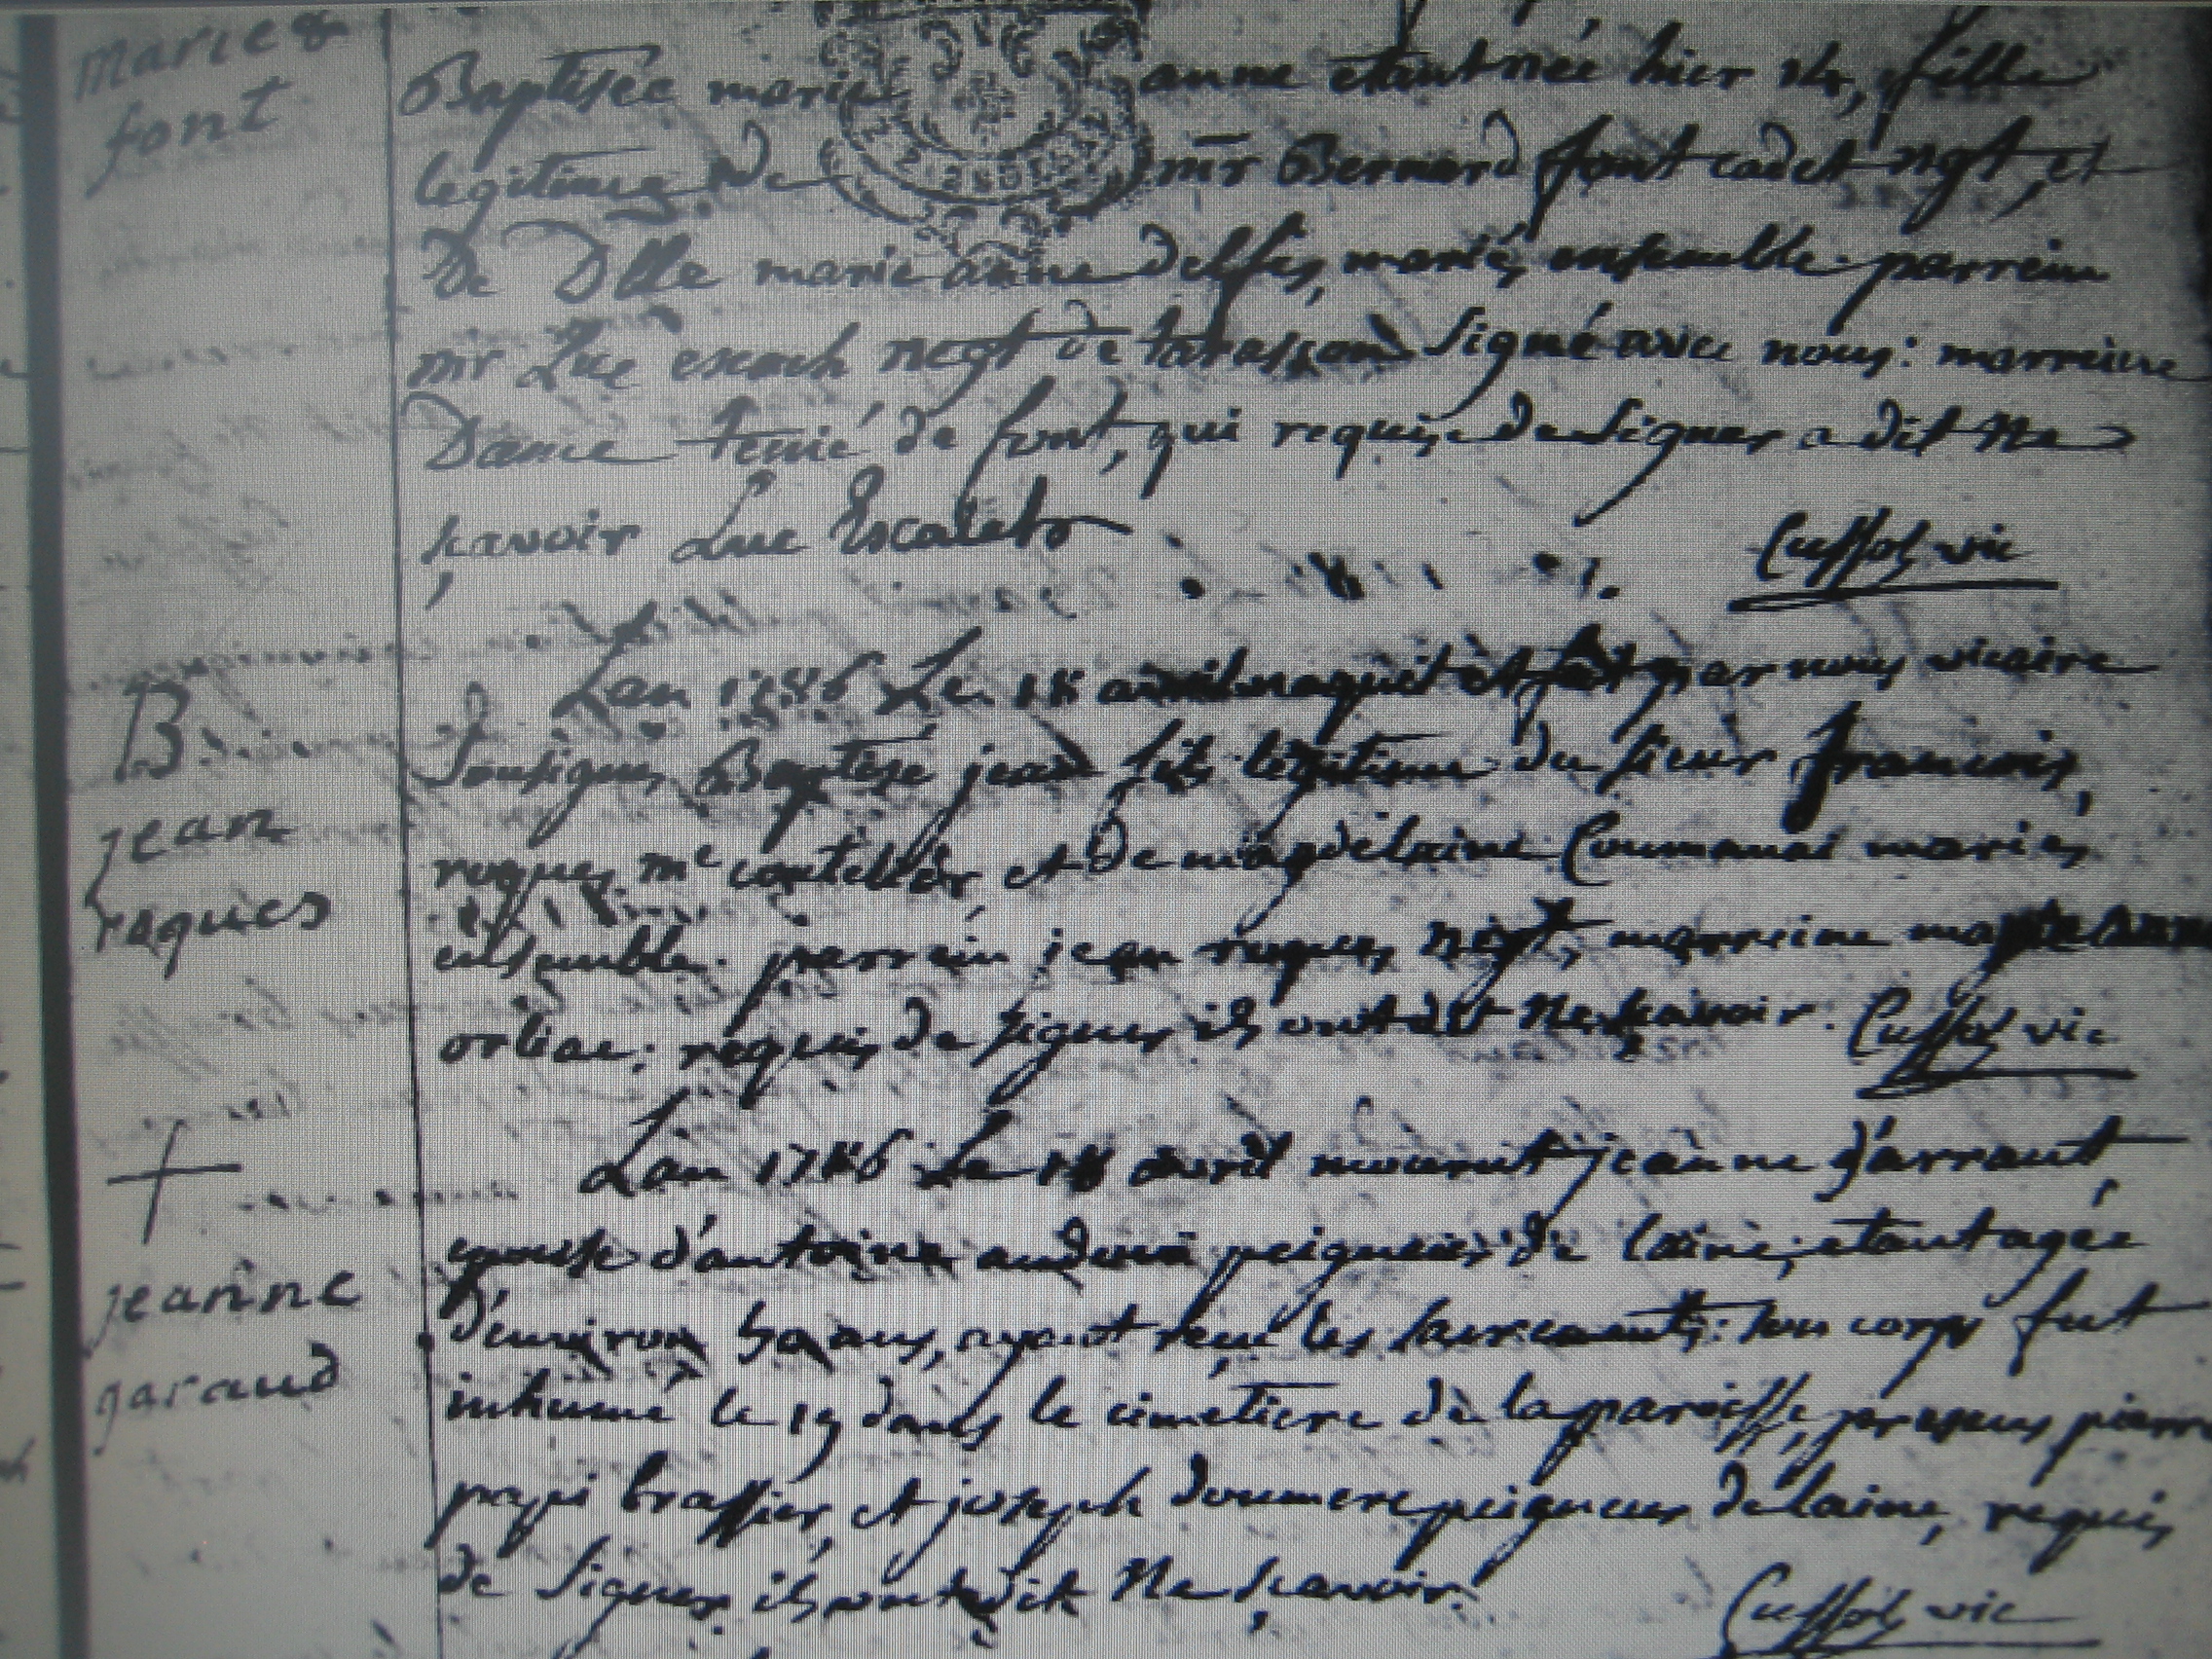 marie &
font
Baptisée marie anne etant née hier
fille
legitime de mr Bernard font cadet ngt, et
De Dlle marie anne mariés ensemble. parrein
mr Luc negt de tarascon signé avec nous: marreine
Dame de font, qui requise de signer a dit Ne
scavoir Luc Escalets
Cussol vic
B.
jean
roques
Lan 1786 Le 18 avril naquit et fut par nous vicaire
sousigné Baptisé jean fils légitime du sieur francois
roques me et de magdelaine mariés
ensemble. parrein jean roques negt, marreine
orliac: requis de signer ils ont dit Ne scavoir. Cussol vic
+
jeanne
garaud
Lan 1786 Le 18 avril mourut jeanne garraut
epouse d'antoine peigneur de laine, etant agée
d'environ 50 ans, ayant reçu les sacrements: son corps fut
inhumé le 19 dans le cimetiere de la paroisse, presens pierre
brassier, et joseph doumerc peigneur de laine, requis
de signer ils ont dit Ne scavoir.
Cussol vic